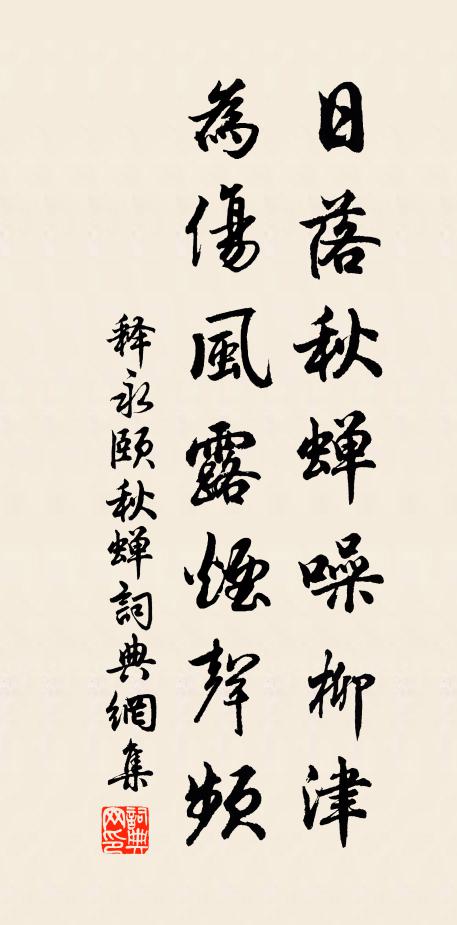 日落秋蝉噪柳津
為傷風露煙聲頻
释永頤秋蝉詞典網集
詞典网印